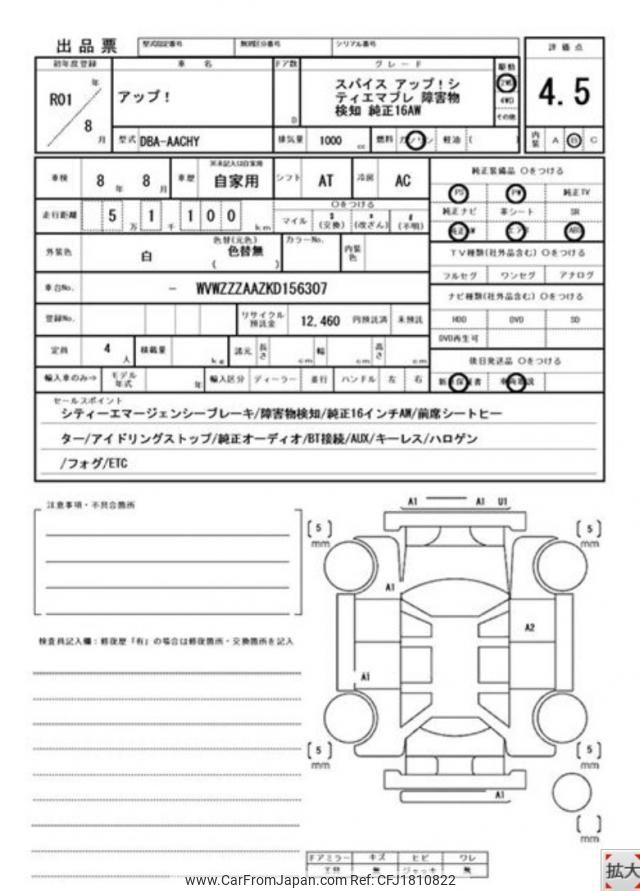 出品票
型式指定番号
類別区分番号
シリアル番号
評価点
4.5
内装 A B C
初年度登録
R01 年
8 月
車名
アップ！
ドア数
D
グレード
スパイス アップ！シ
ティエマブレ 障害物
検知 純正16AW
駆動
2WD
4WD
その他
型式 DBA-AACHY
排気量 1000 cc
燃料 ガソリン 軽油 ( )
車検 8 年 8 月
車歴
※未記入は自家用
自家用
シフト AT
冷房 AC
走行距離 5 万 1 千 1 0 0 km
○をつける
マイル $ (交換) * (改ざん) # (不明)
外装色 白
色替(元色)
色替無
( )
カラーNo.
内装色
車台No. - WVWZZZAAZKD156307
登録No.
リサイクル預託金 12,460 円預託済 未預託
定員 4 人
積載量 kg
諸元 長さ cm 幅 cm 高さ cm
輸入車のみ⇒
モデル年式 年
輸入区分 ディーラー 並行
ハンドル 左 右
純正装備品 ○をつける
PS PW 純正TV
純正ナビ 革シート SR
純正AW エアB ABS
TV種類(社外品含む) ○をつける
フルセグ ワンセグ アナログ
ナビ種類(社外品含む) ○をつける
HDD DVD SD
DVD再生可
後日発送品 ○をつける
新車保証書 車両取説
セールスポイント
シティーエマージェンシーブレーキ/障害物検知/純正16インチAW/前席シートヒー
ター/アイドリングストップ/純正オーディオ/BT接続/AUX/キーレス/ハロゲン
/フォグ/ETC
注意事項・不具合箇所
検査員記入欄：修復歴「有」の場合は修復箇所・交換箇所を記入
A1 A1 U1
[ 5 ] mm
[ 5 ] mm
A1
A2
A1
[ 5 ] mm
[ 5 ] mm
A1
[ ] mm
ドアミラー キズ ヒビ ワレ
拡大
www.CarFromJapan.com Ref: CFJ1810822